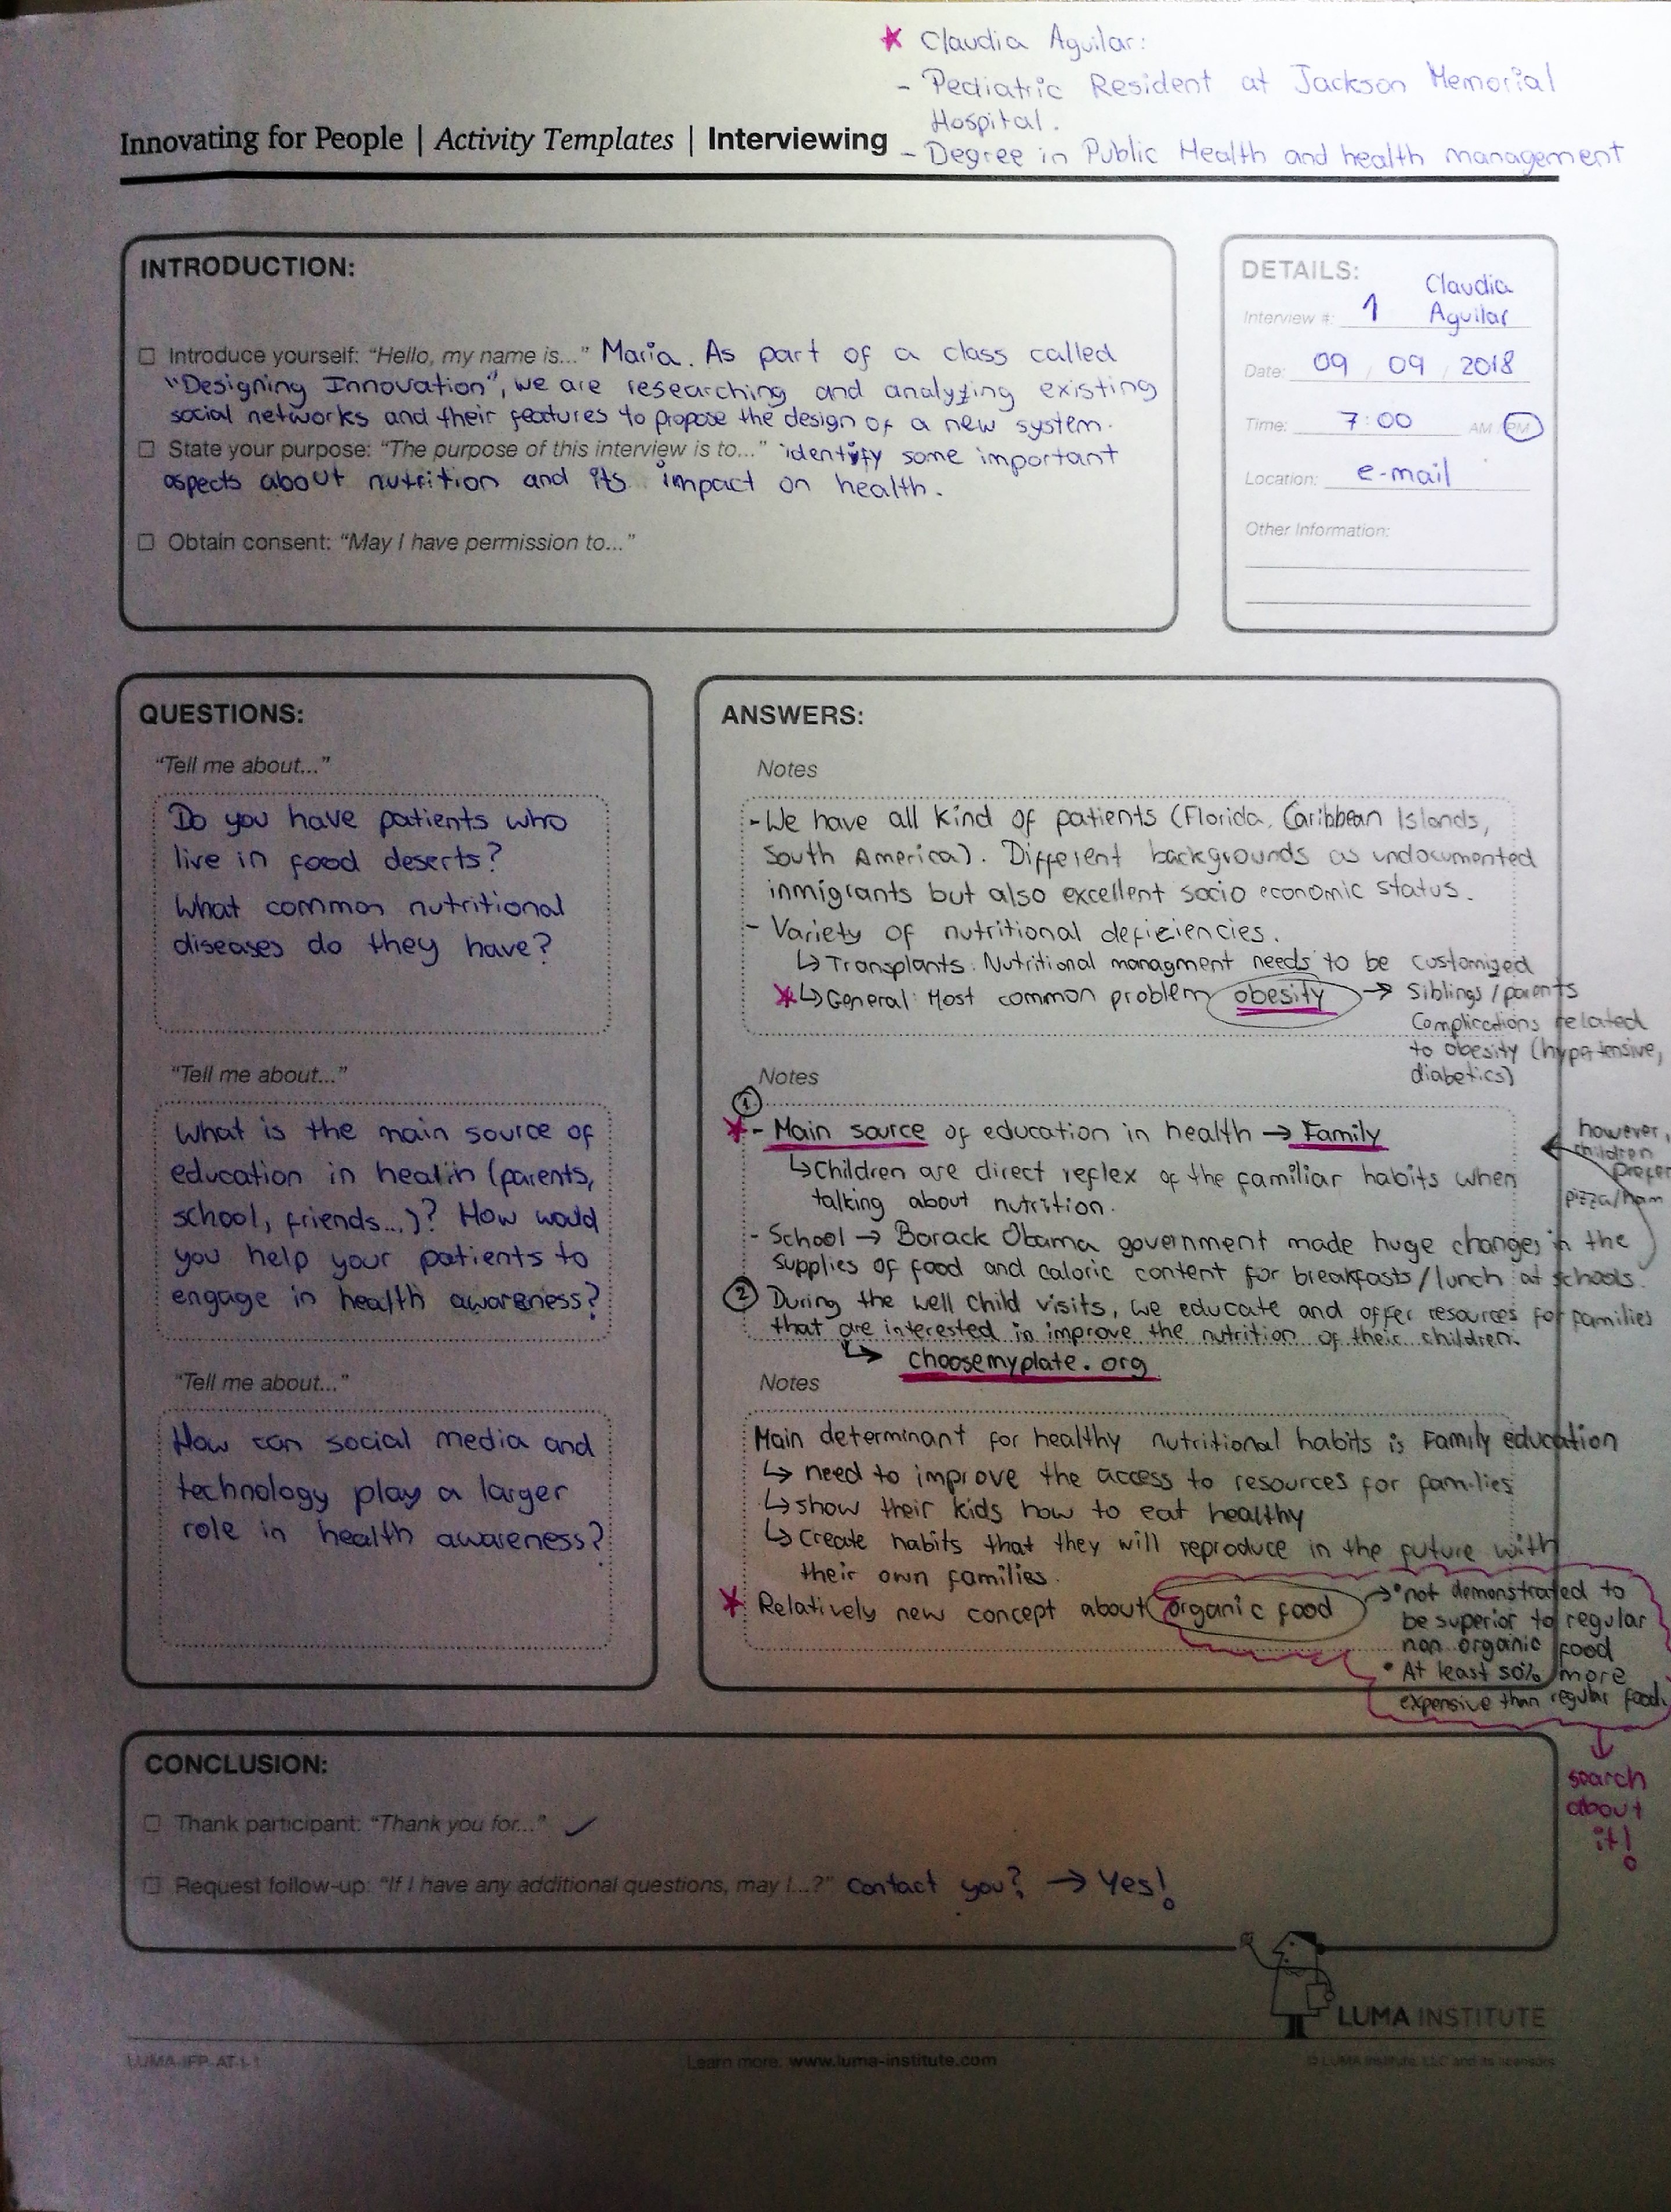 ★ Claudia Aguilar:
- Pediatric Resident at Jackson Memorial
Hospital.
- Degree in Public Health and health management
Innovating for People | Activity Templates | Interviewing
INTRODUCTION:
☐ Introduce yourself: “Hello, my name is...” Maria. As part of a class called
"Designing Innovation", we are researching and analyzing existing
social networks and their features to propose the design of a new system.
☐ State your purpose: “The purpose of this interview is to...” identify some important
aspects about nutrition and its impact on health.
☐ Obtain consent: “May I have permission to...”
DETAILS:
Claudia
Interview #: 1 Aguilar
Date: 09 / 09 / 2018
Time: 7:00 AM / PM
Location: e-mail
Other Information:
QUESTIONS:
“Tell me about...”
Do you have patients who
live in food deserts?
What common nutritional
diseases do they have?
“Tell me about...”
What is the main source of
education in health (parents,
school, friends...)? How would
you help your patients to
engage in health awareness?
“Tell me about...”
How can social media and
technology play a larger
role in health awareness?
ANSWERS:
Notes
- We have all kind of patients (Florida, Caribbean Islands,
South America). Different backgrounds as undocumented
inmigrants but also excellent socio economic status.
- Variety of nutritional deficiencies.
↳ Transplants: Nutritional managment needs to be customized
★ ↳ General: Most common problem obesity → Siblings / parents
Complications related
to obesity (hypertensive,
diabetics)
Notes
①
★ - Main source of education in health → Family
↳ Children are direct reflex of the familiar habits when
talking about nutrition.
- School → Barack Obama government made huge changes in the
supplies of food and caloric content for breakfasts/lunch at schools.
however,
children
prefer
pizza/ham
② During the well child visits, we educate and offer resources for families
that are interested in improve the nutrition of their children.
↳ choosemyplate.org
Notes
Main determinant for healthy nutritional habits is Family education
↳ need to improve the access to resources for families
↳ show their kids how to eat healthy
↳ create habits that they will reproduce in the future with
their own families.
★ Relatively new concept about organic food → • not demonstrated to
be superior to regular
non organic food
• At least 50% more
expensive than regular food.
↓
search
about
it!
CONCLUSION:
☐ Thank participant: “Thank you for...” ✓
☐ Request follow-up: “If I have any additional questions, may I...?” contact you? → Yes!
LUMA INSTITUTE
LUMA-IFP-AT-I-1
Learn more: www.luma-institute.com
© LUMA Institute, LLC and its licensors